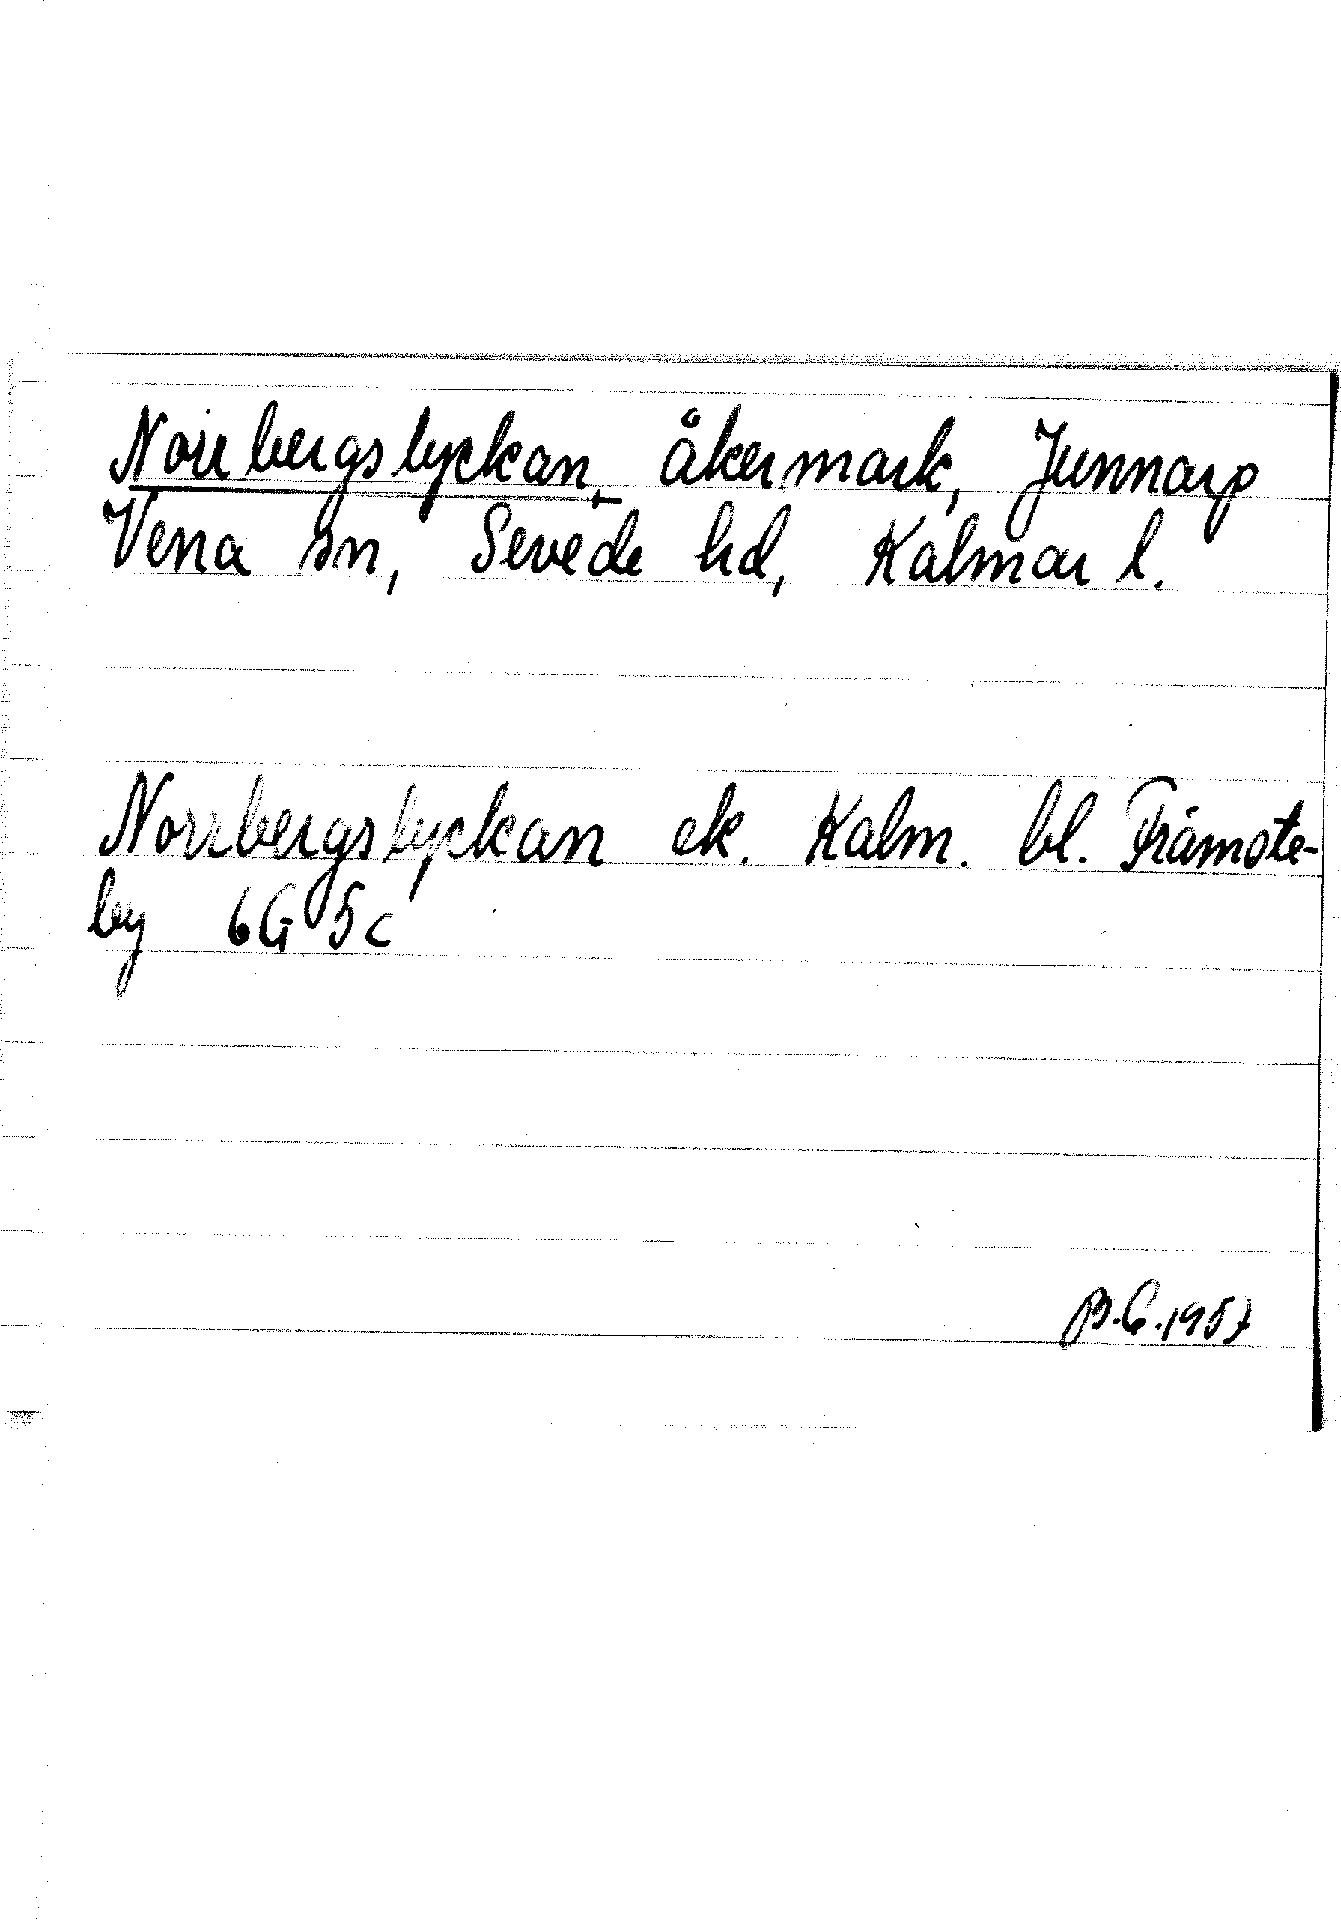 Norrbergslyckan, åkermark, Junnarp
Vena sn, Sevede hd, Kalmar l.
Norrbergslyckan ek. Kalm. bl. Tråmste-
by 6G 5c
1957